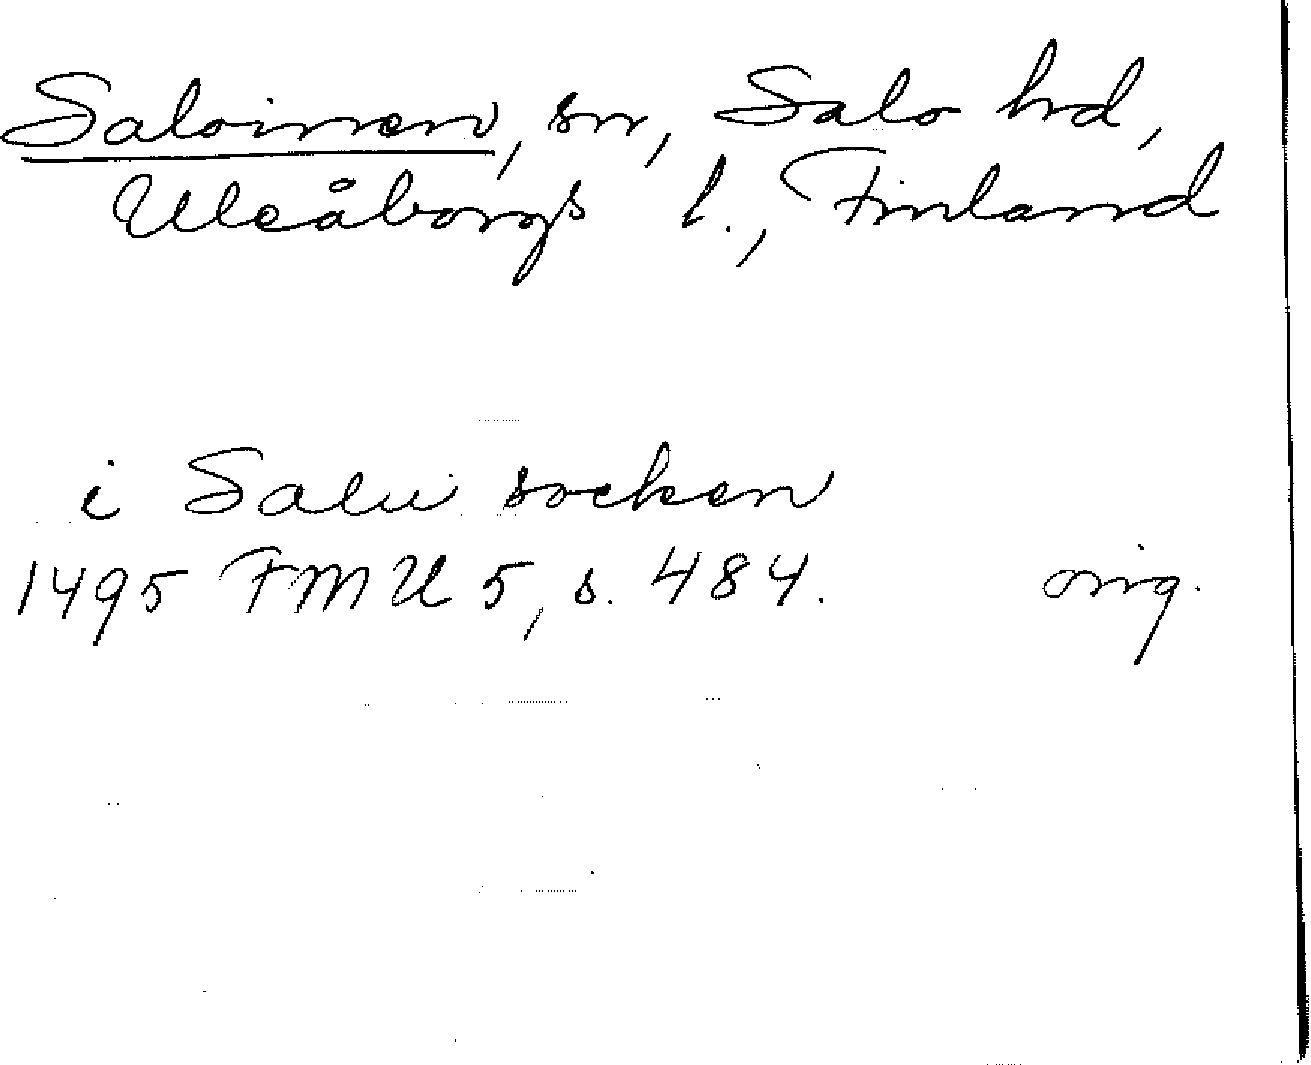 Saloinen, sn, Salo hd,
Uleåborgs l., Finland
i Salu socken
1495 FMU 5, s. 484. orig.